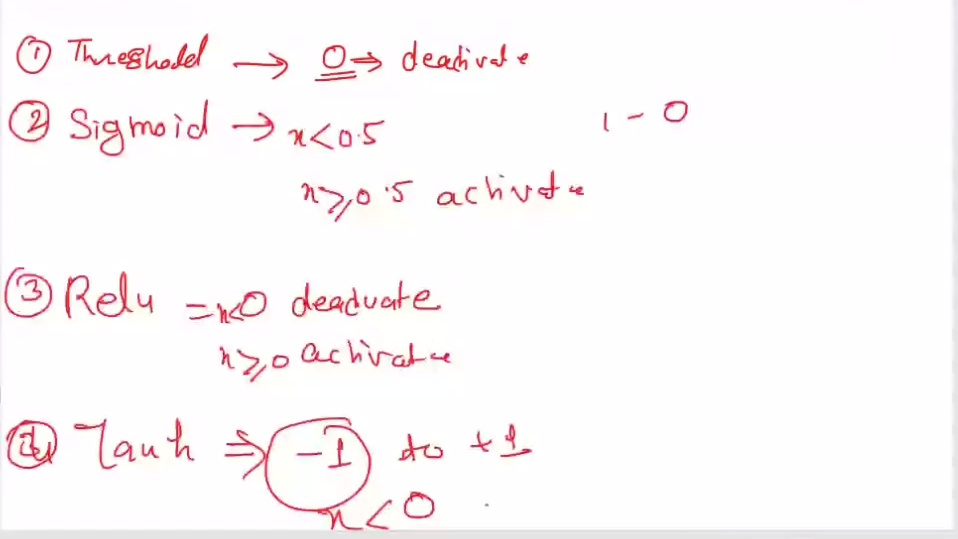 ① Threshold → 0 ⇒ deactivate
② Sigmoid → x < 0.5
1 - 0
x ≥ 0.5 activate
③ Relu = x<0 deactuate
x ≥ 0 activate
④ Tanh ⇒ -1 to +1
x < 0